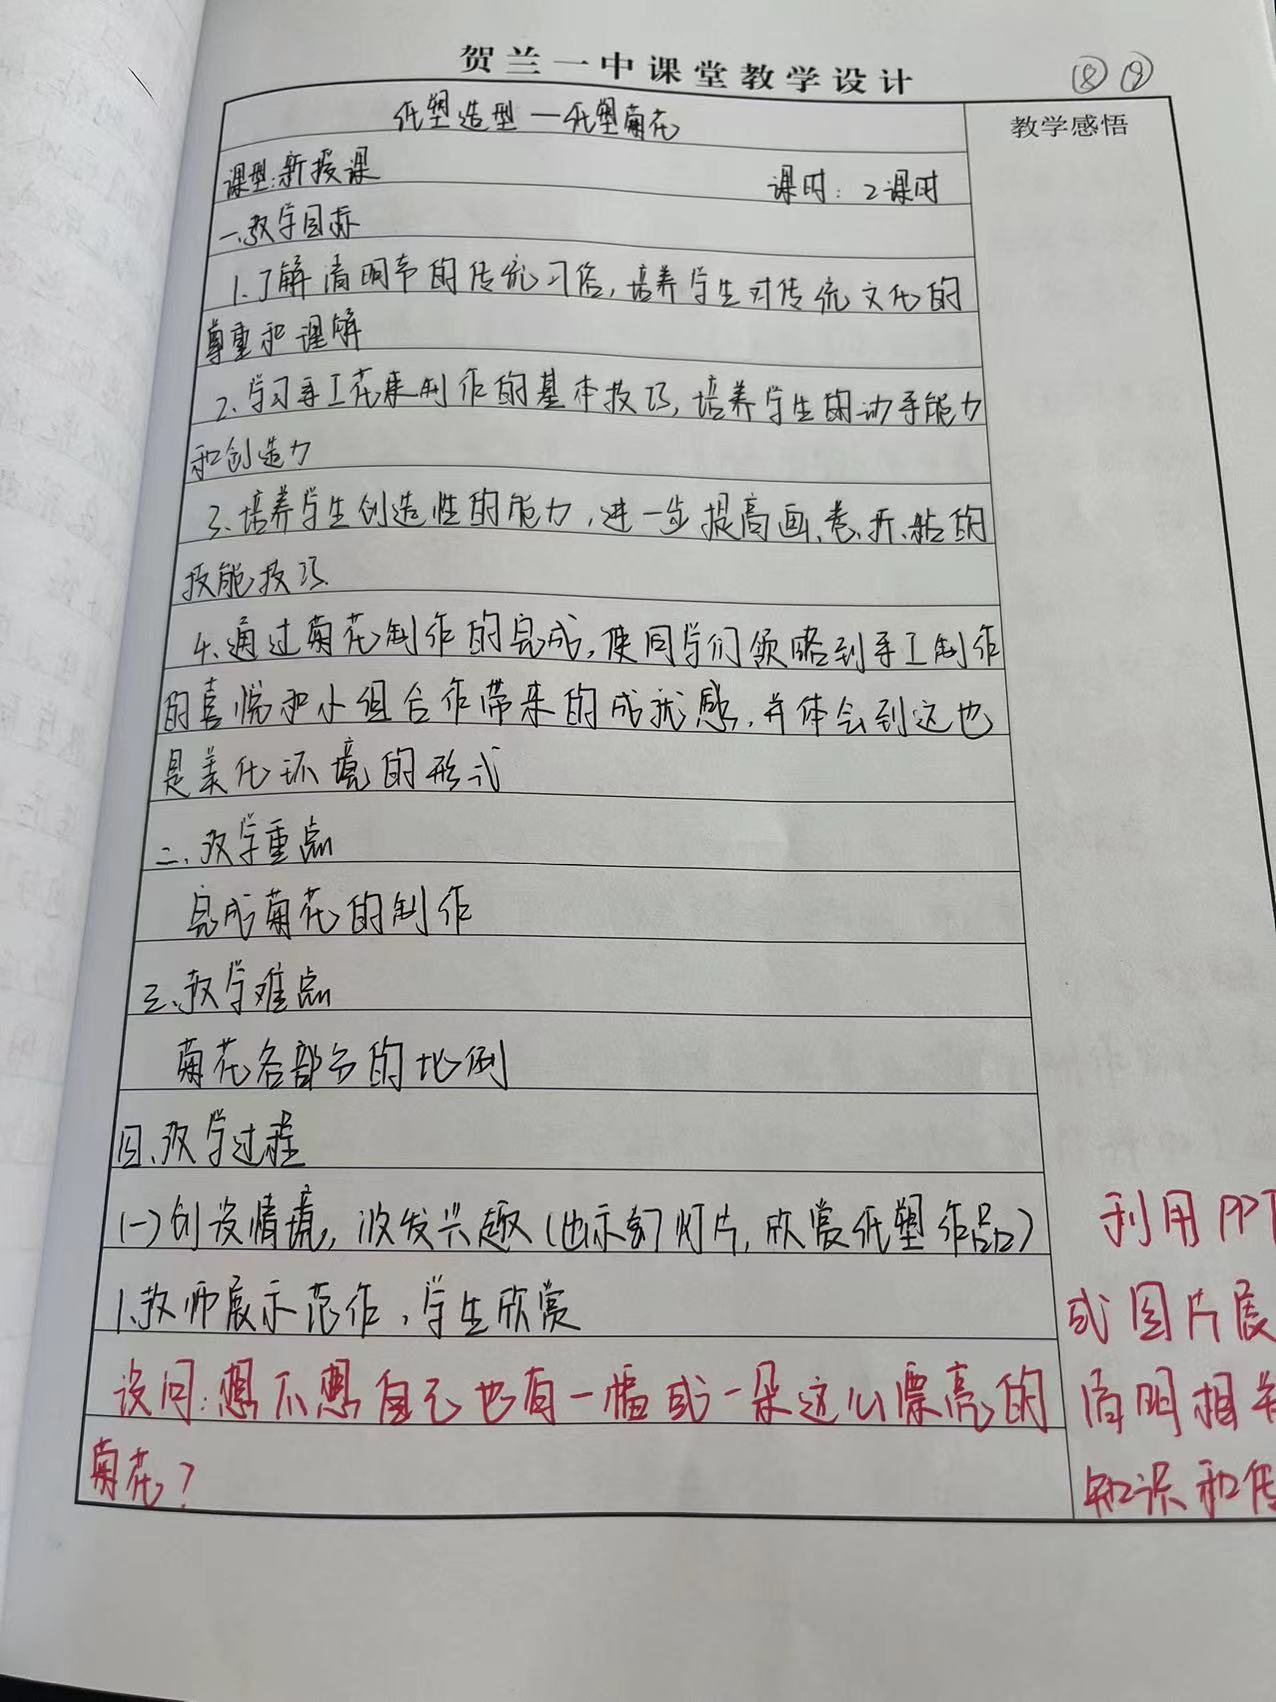 贺兰一中课堂教学设计
⑧ ⑨
纸塑造型—纸塑菊花
教学感悟
课型:新授课 课时: 2课时
一、教学目标
1.了解清明节的传统习俗,培养学生对传统文化的
尊重和理解
2、学习手工花束制作的基本技巧,培养学生的动手能力
和创造力
3、培养学生创造性的能力,进一步提高画、卷、折、粘的
技能技巧
4、通过菊花制作的完成,使同学们领略到手工制作
的喜悦和小组合作带来的成就感,并体会到这也
是美化环境的形式
二、教学重点
完成菊花的制作
三、教学难点
菊花各部分的比例
四、教学过程
(一)创设情境,激发兴趣(出示幻灯片,欣赏纸塑作品)
1.教师展示范作,学生欣赏
设问:想不想自己也有一幅或一朵这么漂亮的
菊花?
利用PPT
或图片展
清明相关
知识和传